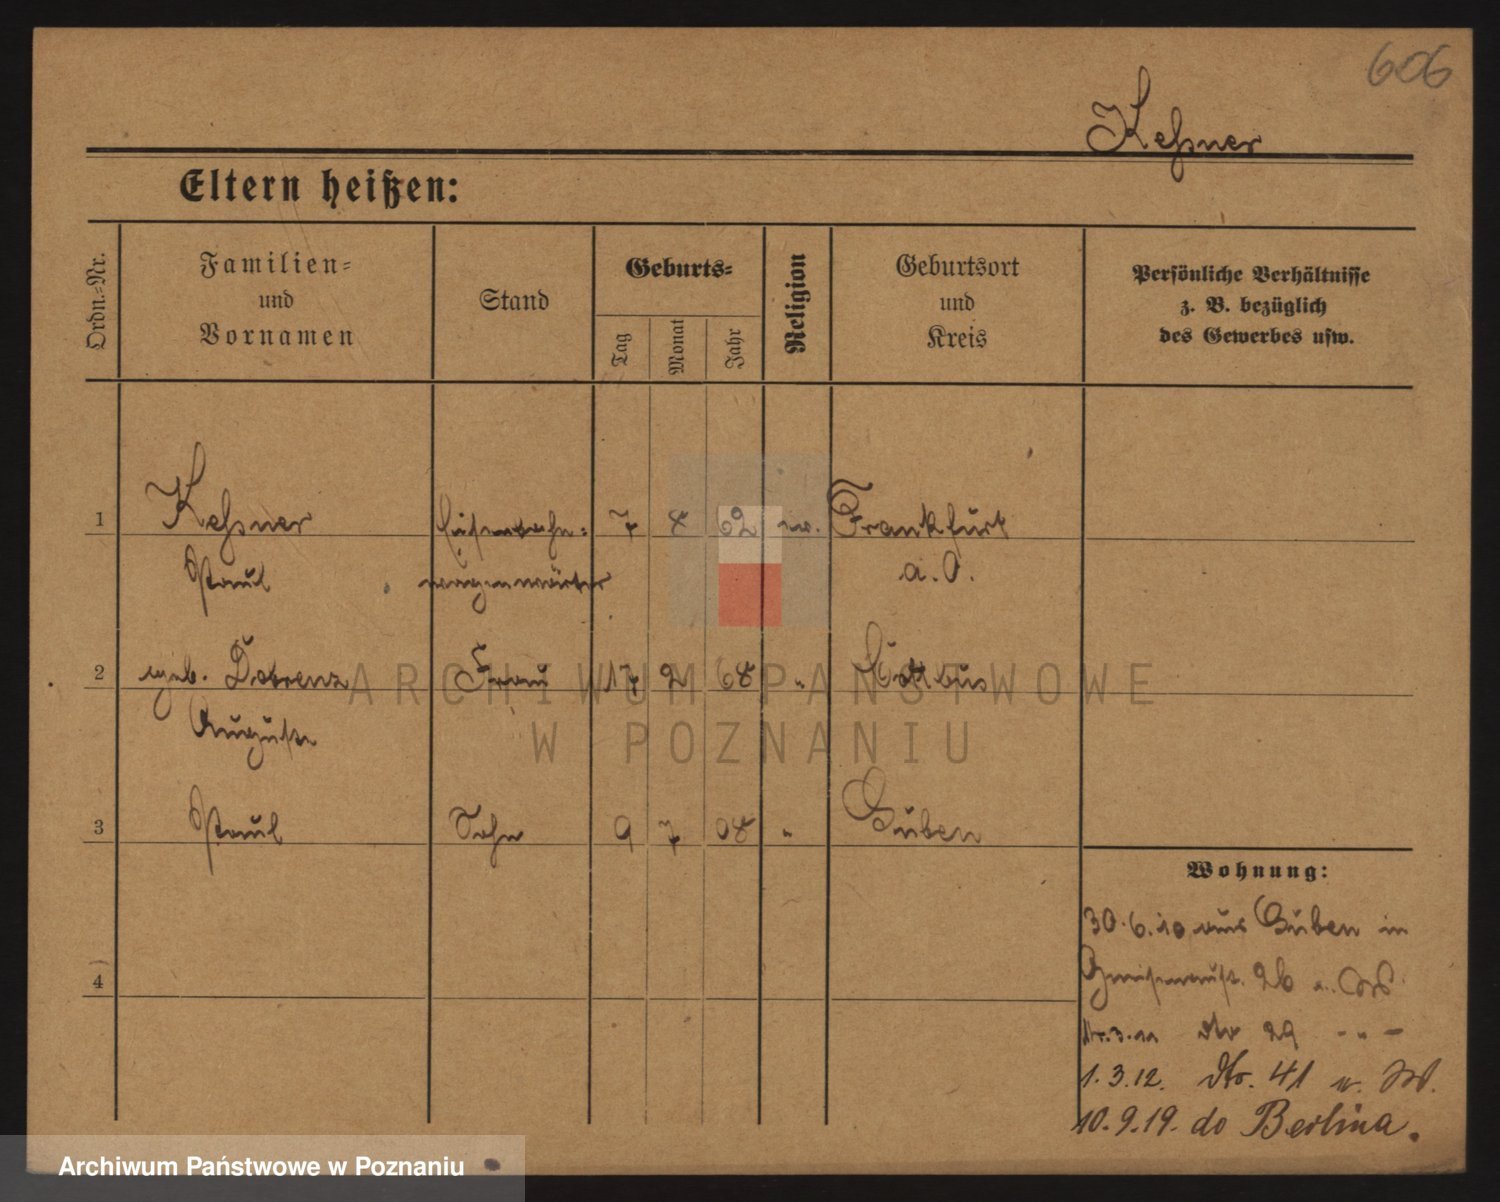 606
Keßner
Eltern heißen:
Ordn.-Nr.
Familien-
und
Vornamen
Stand
Geburts-
Tag
Monat
Jahr
Religion
Geburtsort
und
Kreis
Persönliche Verhältnisse
z. B. bezüglich
des Gewerbes usw.
1 Keßner Eisenbahn- 7 8 62 ev. Frankfurt
Paul wagenwärter a. O.
2 geb. Dobrenz Frau 17 2 68 " Kottbus
Auguste
3 Paul Sohn 9 7 08 " Guben
4
Wohnung:
30.6.10 aus Guben in
Gneisenaust. 26
29 - " -
1.3.12. dto. 41
10.9.19. do Berlina.
ARCHIWUM PAŃSTWOWE
W POZNANIU
Archiwum Państwowe w Poznaniu